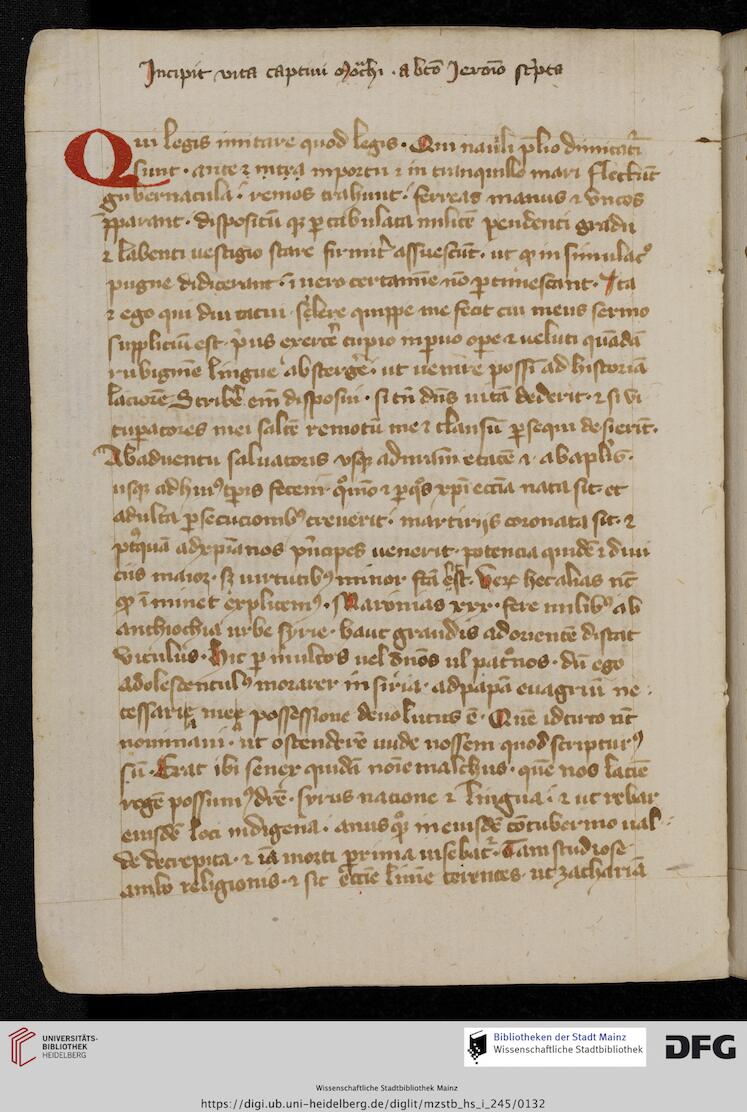 Incipit vita captiui Mo͞chi · a bto͞ Jero͞io sc͛pta
Qui legis imitare quod legis · Qui nauli p͛lio dimicat͛i
sunt · ante ⁊ intra in portu ⁊ in tranquillo mari flectu͞t
gubernacula · remos trahunt · ferreas manus ⁊ vncos
p͛parant · dispositu͞ qꝫ ꝑ tabulata milite͞ pendenti gradu
⁊ labenti uestigio stare firmit͛ assuescu͞t · ut qͩ in simulacᵒ
pugne didicerant · ı͞ uero certami͞e no͞ ꝑtimescant · Ita
⁊ ego qui diu tacui · sçlere quippe me fecit cui meus sermo
suppliciu͞ est · p͛us exerce͛ cupio in paruo oꝑe ⁊ ueluti qua͞da͞
rubigine͞ lingue absterge͛ · ut uenire possi͞ ad historia͞
laciore͞ Scribe͛ em͞ disposui · si tn͞ dn͞s uita͞ dederit · ⁊ si vi
tuꝑatores mei salte͞ remotu͞ me ⁊ clausu͞ ꝑsequi desierit͛ ·
Ab aduentu saluatoris vsqꝫ ad nr͞am etate͞ ⁊ · ab apl͞is ·
usqꝫ ad huiᵒ tꝑis fecem · qͦmo͞ ⁊ ꝑ qͦs xp͞i ecc͞ia nata sit · et
adulta ꝑsecucionibꝰ creuerit · martirijs coronata sit · ⁊
pͦtqua͞ ad xp͞ianos p͛ncipes uenerit · potencia quide͞ ⁊ diui
ciis maior · sꝫ uirtutibꝰ minor · fc͞a est · Verꝫ hec alias nc͞
qͩ ı͞minet explicemꝰ · Maronias xxx · fere milibꝰ ab
anthiochia urbe syrie · haut grandis ad oriente͞ distat
viculus · Hic ꝑ multos uel dn͞os ul pat͛nos · du͞ ego
adolescentulꝰ morarer in siria · ad papa͞ euagriu͞ ne
cessarii mei possessione deuolutus e͞ · Que͞ idcirco nc͞
nominaui · ut ostenderem vnde nossem quod scripturꝰ
su͞ · Erat ibi senex quida͞ noi͞e malchus · que͞ nos lacie͞
rege͞ possumꝰ dr͞e · syrus nacione ⁊ lingua · ⁊ ut rebar
eiusde͞ loci indigena · anus qͦꝫ in eiusde͞ co͞tubernio ual
de decrepita · ⁊ ia͞ morti ꝓxima uisebat͛ · Tam studiose
ambo religionis · ⁊ sic ecc͞ie lime͞ terentes · ut zacharia͞
UNIVERSITÄTS-
BIBLIOTHEK
HEIDELBERG
Bibliotheken der Stadt Mainz
Wissenschaftliche Stadtbibliothek
DFG
Wissenschaftliche Stadtbibliothek Mainz
https://digi.ub.uni-heidelberg.de/diglit/mzstb_hs_i_245/0132